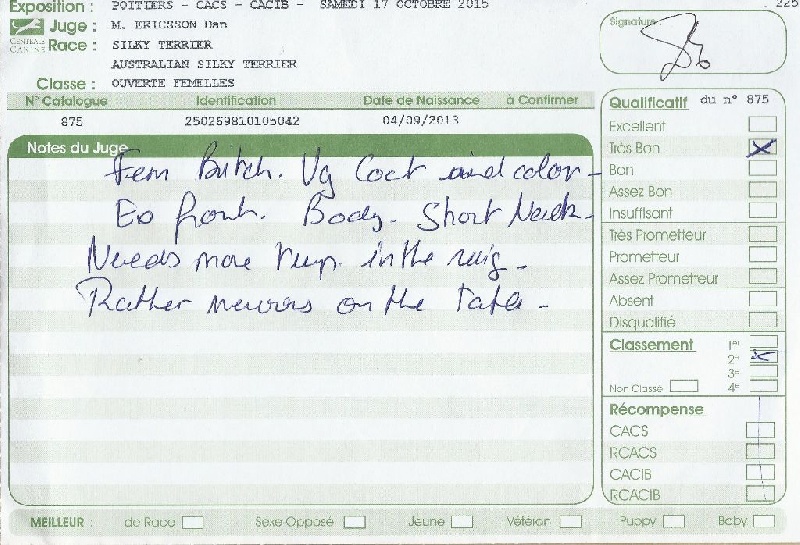 Exposition : POITIERS - CACS - CACIB - SAMEDI 17 OCTOBRE 2015
225
Juge : M. ERICSSON Dan
CENTRALE CANINE
Race : SILKY TERRIER
AUSTRALIAN SILKY TERRIER
Classe : OUVERTE FEMELLES
Signature
N° Catalogue Identification Date de Naissance à Confirmer
875 250269810105042 04/09/2013
Notes du Juge
Fem Bitch. Vg Coat and color -
Ex front. Body. Short Neck -
Needs more in the ring -
Rather on the Table -
Qualificatif du n° 875
Excellent
Très Bon
Bon
Assez Bon
Insuffisant
Très Prometteur
Prometteur
Assez Prometteur
Absent
Disqualifié
Classement 1er
2e
3e
Non Classé 4e
Récompense
CACS
RCACS
CACIB
RCACIB
MEILLEUR : de Race Sexe Opposé Jeune Vétéran Puppy Baby